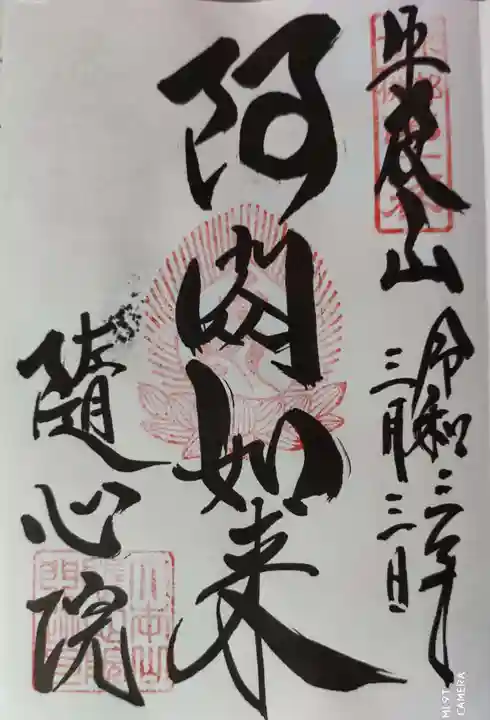 牛皮山
令和三年
三月三日
阿閦如来
隨心院
MI 9T
CAMERA